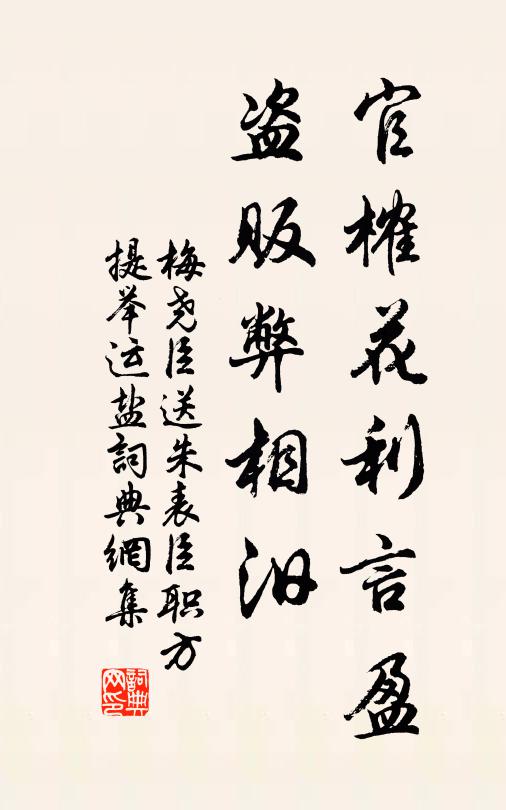 官榷花利言盈
盗販弊相沿
梅尧臣送朱表臣职方
提举运盐詞典網集
詞典网印